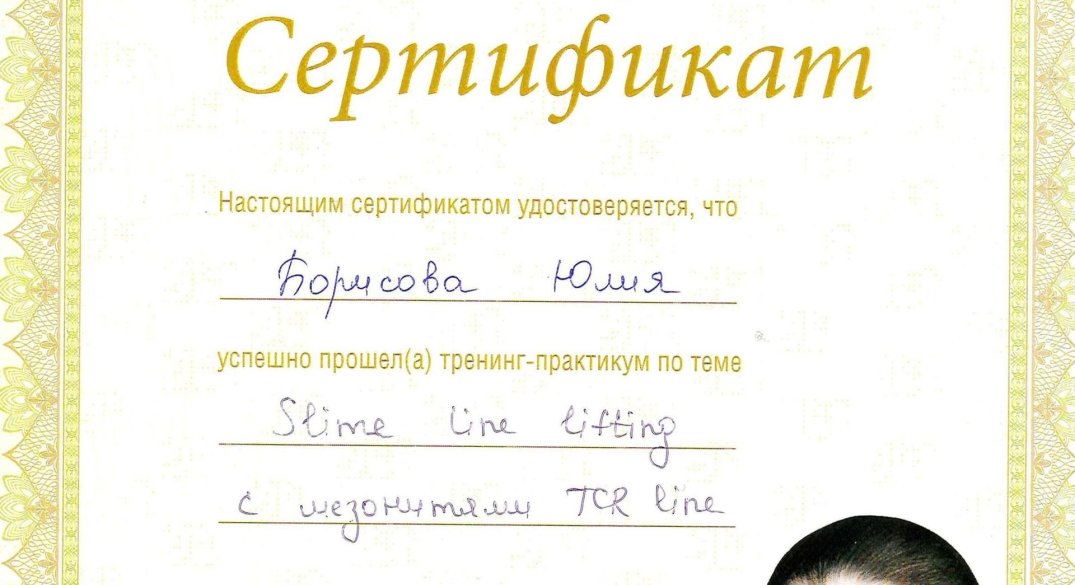 Сертификат
Настоящим сертификатом удостоверяется, что
Борисова Юлия
успешно прошел(а) тренинг-практикум по теме
Slime line lifting
с мезонитями TCR line